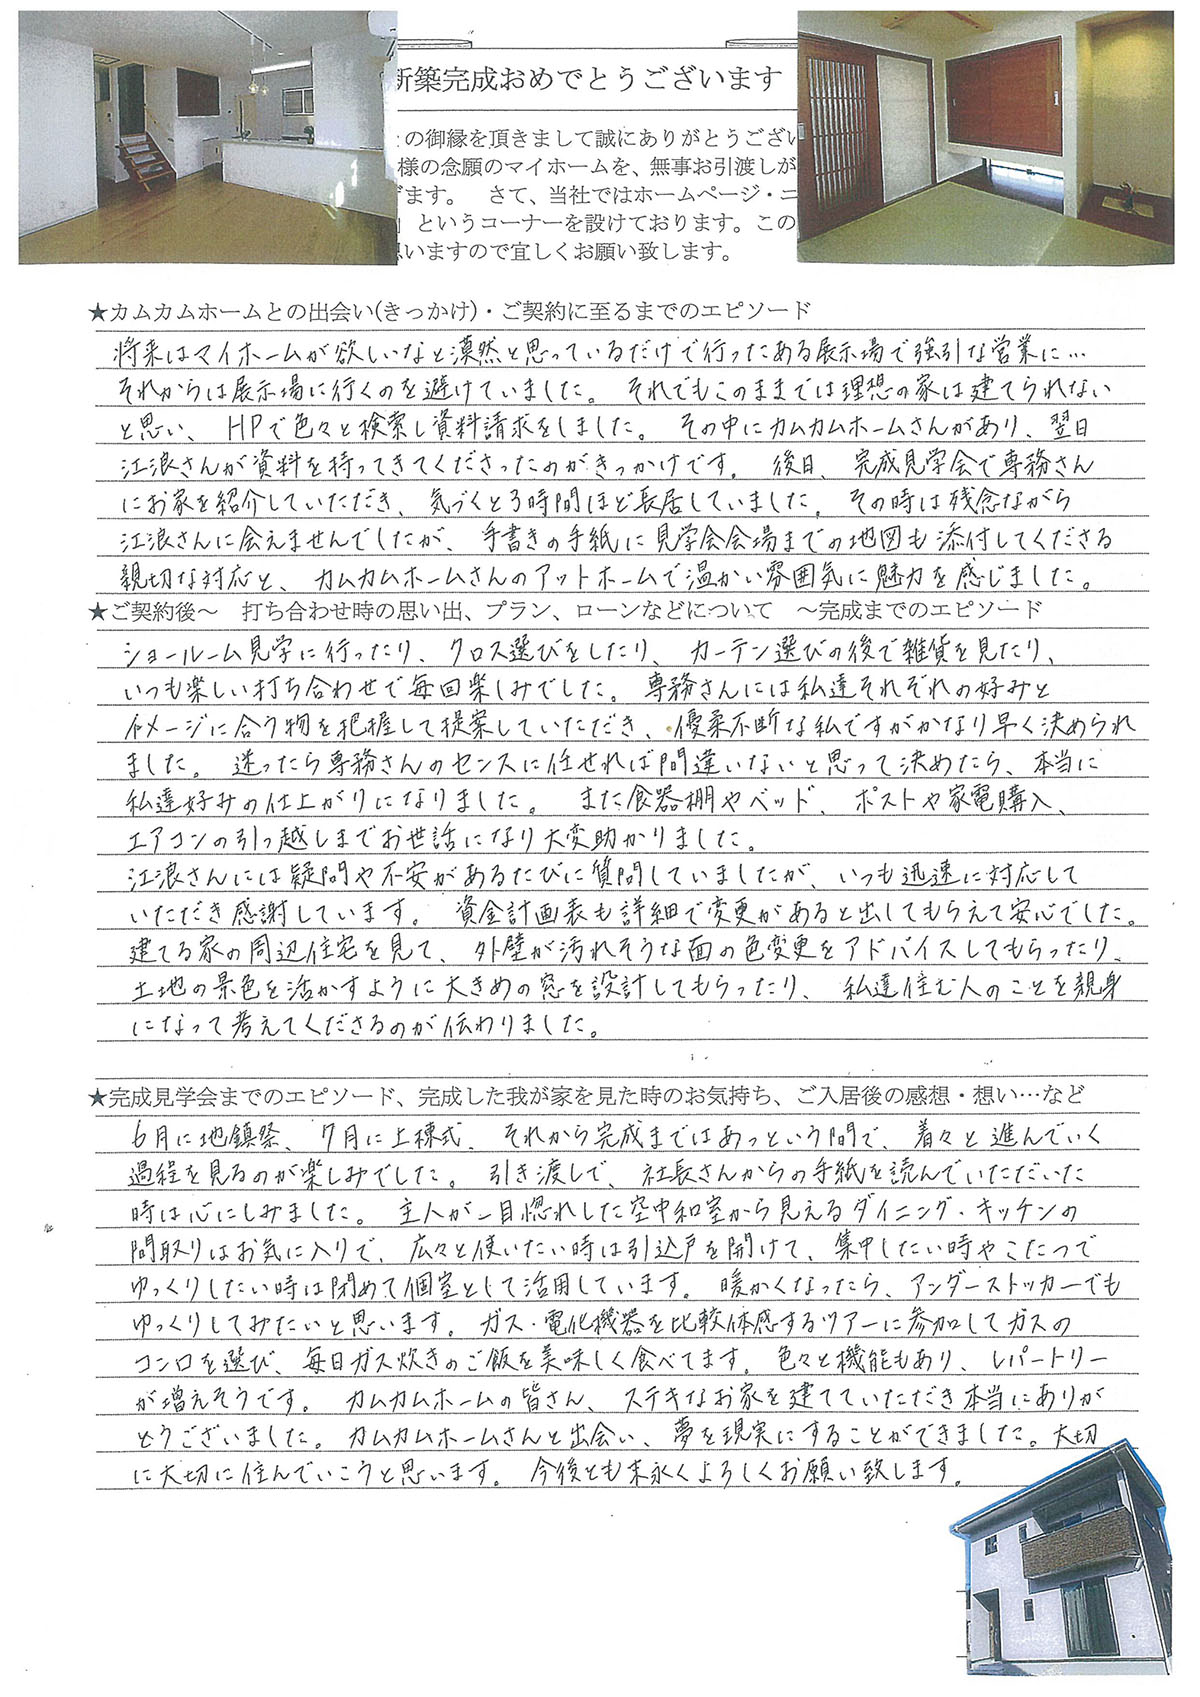 新築完成おめでとうございます
の御縁を頂きまして誠にありがとうござい
様の念願のマイホームを、無事お引渡しが
げます。 さて、当社ではホームページ・ニ
」というコーナーを設けております。この
思いますので宜しくお願い致します。
★カムカムホームとの出会い(きっかけ)・ご契約に至るまでのエピソード
将来はマイホームが欲しいなと漠然と思っているだけで行ったある展示場で強引な営業に…
それからは展示場に行くのを避けていました。 それでもこのままでは理想の家は建てられない
と思い、 HPで色々と検索し資料請求をしました。 その中にカムカムホームさんがあり、翌日
江浪さんが資料を持ってきてくださったのがきっかけです。 後日、完成見学会で専務さん
にお家を紹介していただき、気づくと3時間ほど長居していました。その時は残念ながら
江浪さんに会えませんでしたが、手書きの手紙に見学会会場までの地図も添付してくださる
親切な対応と、カムカムホームさんのアットホームで温かい雰囲気に魅力を感じました。
★ご契約後～ 打ち合わせ時の思い出、プラン、ローンなどについて ～完成までのエピソード
ショールーム見学に行ったり、クロス選びをしたり、カーテン選びの後で雑貨を見たり、
いつも楽しい打ち合わせで毎回楽しみでした。専務さんには私達それぞれの好みと
イメージに合う物を把握して提案していただき、優柔不断な私ですがかなり早く決められ
ました。 迷ったら専務さんのセンスに任せれば間違いないと思って決めたら、本当に
私達好みの仕上がりになりました。 また食器棚やベッド、ポストや家電購入、
エアコンの引っ越しまでお世話になり大変助かりました。
江浪さんには疑問や不安があるたびに質問していましたが、いつも迅速に対応して
いただき感謝しています。 資金計画表も詳細で変更があると出してもらえて安心でした。
建てる家の周辺住宅を見て、外壁が汚れそうな面の色変更をアドバイスしてもらったり、
土地の景色を活かすように大きめの窓を設計してもらったり、私達住む人のことを親身
になって考えてくださるのが伝わりました。
★完成見学会までのエピソード、完成した我が家を見た時のお気持ち、ご入居後の感想・想い…など
6月に地鎮祭、7月に上棟式、それから完成まではあっという間で、着々と進んでいく
過程を見るのが楽しみでした。 引き渡しで、社長さんからの手紙を読んでいただいた
時は心にしみました。 主人が一目惚れした空中和室から見えるダイニング・キッチンの
間取りはお気に入りで、広々と使いたい時は引込戸を開けて、集中したい時やこたつで
ゆっくりしたい時は閉めて個室として活用しています。 暖かくなったら、アンダーストッカーでも
ゆっくりしてみたいと思います。ガス・電化機器を比較体感するツアーに参加してガスの
コンロを選び、毎日ガス炊きのご飯を美味しく食べてます。色々と機能もあり、レパートリー
が増えそうです。 カムカムホームの皆さん、ステキなお家を建てていただき本当にありが
とうございました。カムカムホームさんと出会い、夢を現実にすることができました。大切
に大切に住んでいこうと思います。 今後とも末永くよろしくお願い致します。